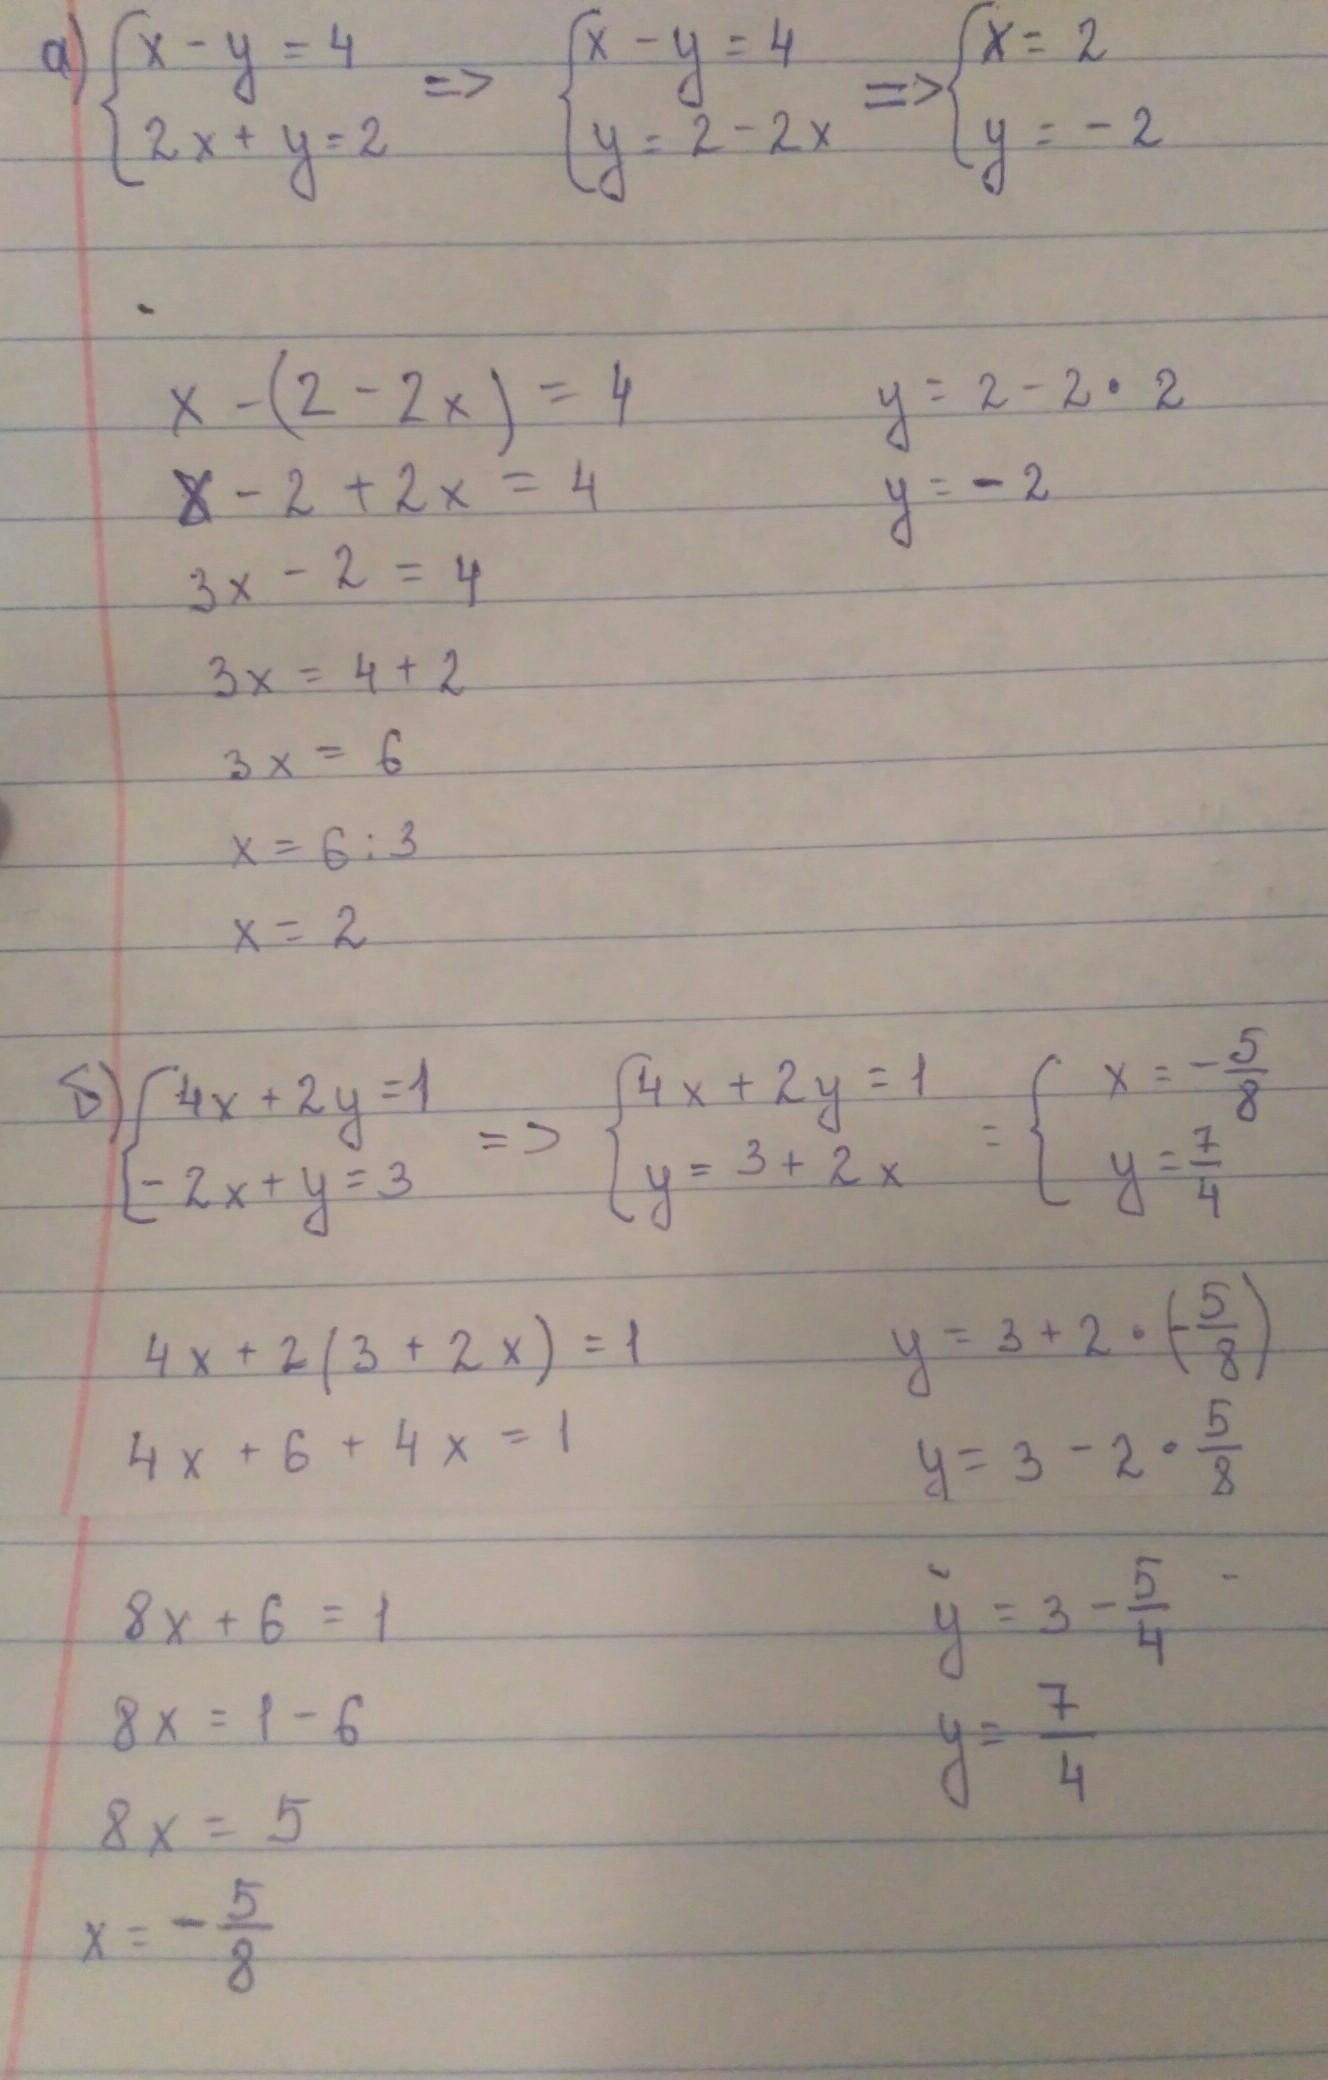 а) { x - y = 4 => { x - y = 4 => { x = 2
2x + y = 2 y = 2 - 2x y = - 2
x - (2 - 2x) = 4
x - 2 + 2x = 4
3x - 2 = 4
3x = 4 + 2
3x = 6
x = 6 : 3
x = 2
y = 2 - 2 • 2
y = - 2
б) { 4x + 2y = 1 => { 4x + 2y = 1 = { x = - 5/8
- 2x + y = 3 y = 3 + 2x y = 7/4
4x + 2(3 + 2x) = 1
4x + 6 + 4x = 1
8x + 6 = 1
8x = 1 - 6
8x = 5
x = - 5/8
y = 3 + 2 • (- 5/8)
y = 3 - 2 • 5/8
y = 3 - 5/4
y = 7/4